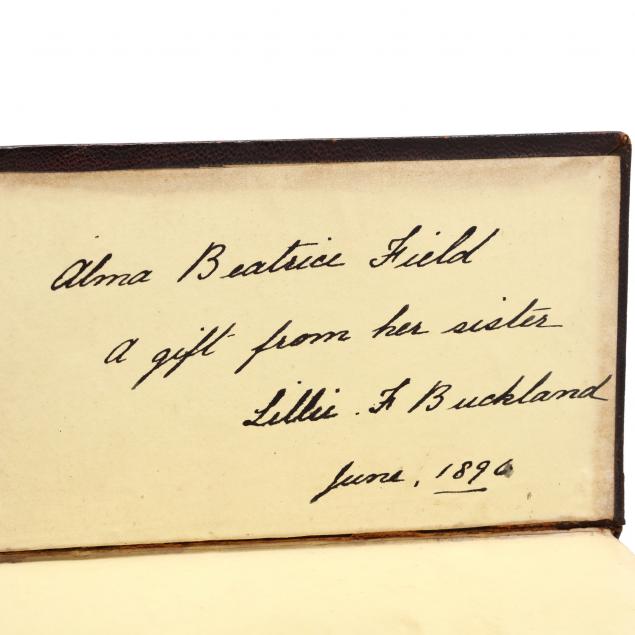 Alma Beatrice Field
A gift from her sister
Lillie . F Buckland
June, 1896